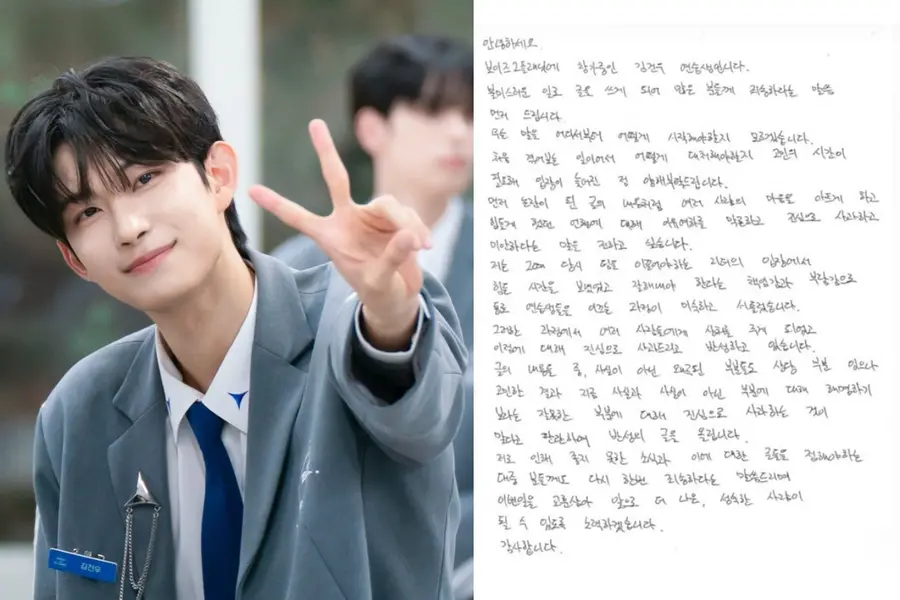 김건우
안녕하세요.
보이즈 2플래닛에 참가중인 김건우 연습생입니다.
불미스러운 일로 글을 쓰게 되어 많은 분들께 죄송하다는 말씀
먼저 드립니다.
무슨 말을 어디서부터 어떻게 시작해야할지 모르겠습니다.
처음 겪어보는 일이어서 어떻게 대처해야할지 고민의 시간이
필요해 입장이 늦어진 점 양해부탁드립니다.
먼저 논란이 된 글의 내용처럼 여러 사람의 마음을 아프게 하고
힘들게 했던 언행에 대해 이유여하를 막론하고 진심으로 사과하고
미안하다는 말을 전하고 싶습니다.
저는 그때 당시 팀을 이끌어야하는 리더의 입장에서
힘든 시간을 보냈었고 잘해내야 한다는 책임감과 부담감으로
동료 연습생들을 이끄는 과정이 미숙하고 서툴렀습니다.
그러한 과정에서 여러 사람들에게 상처를 주게 되었고
이점에 대해 진심으로 사과드리고 반성하고 있습니다.
글의 내용들 중, 사실이 아닌 왜곡된 부분들도 상당 부분 있으나
고민한 결과 지금 사실과 사실이 아닌 부분에 대해 해명하기
보다는 잘못한 부분에 대해 진심으로 사과하는 것이
맞다고 판단하여 반성의 글을 올립니다.
저로 인해 좋지 못한 소식과 이에 대한 글들을 접해야하는
대중 분들께도 다시 한번 죄송하다는 말씀드리며
이번일을 교훈삼아 앞으로 더 나은, 성숙한 사람이
될 수 있도록 노력하겠습니다.
감사합니다.